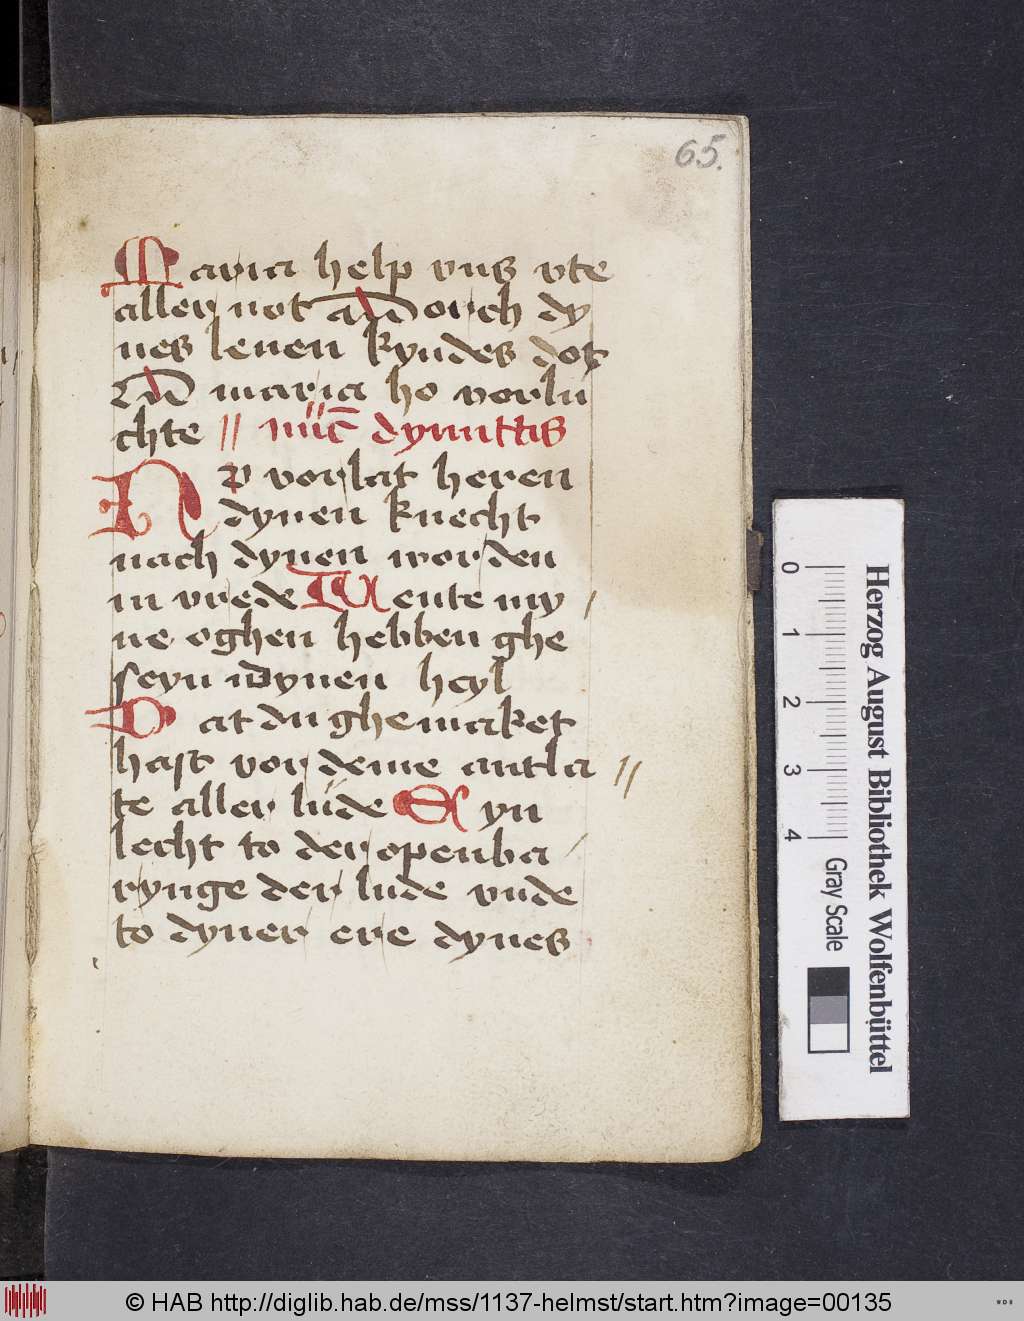 65.
Maria help vns vte
aller not an̅ dorch dy
nes leuen kyndes dot
an̅ maria ho vorlu
chte // nuc̅ dymittis
Nv vorlat heren
dynen knecht
nach dynen worden
in vrede Wente my
ne oghen hebben ghe
seyn dynen heyl
Dat du ghemaket
hast vor deme antla
te aller lude Eyn
lecht to der openba
rynge der lude vnde
to dyner ere dynes
0 1 2 3 4
Gray Scale
Herzog August Bibliothek Wolfenbüttel
© HAB http://diglib.hab.de/mss/1137-helmst/start.htm?image=00135